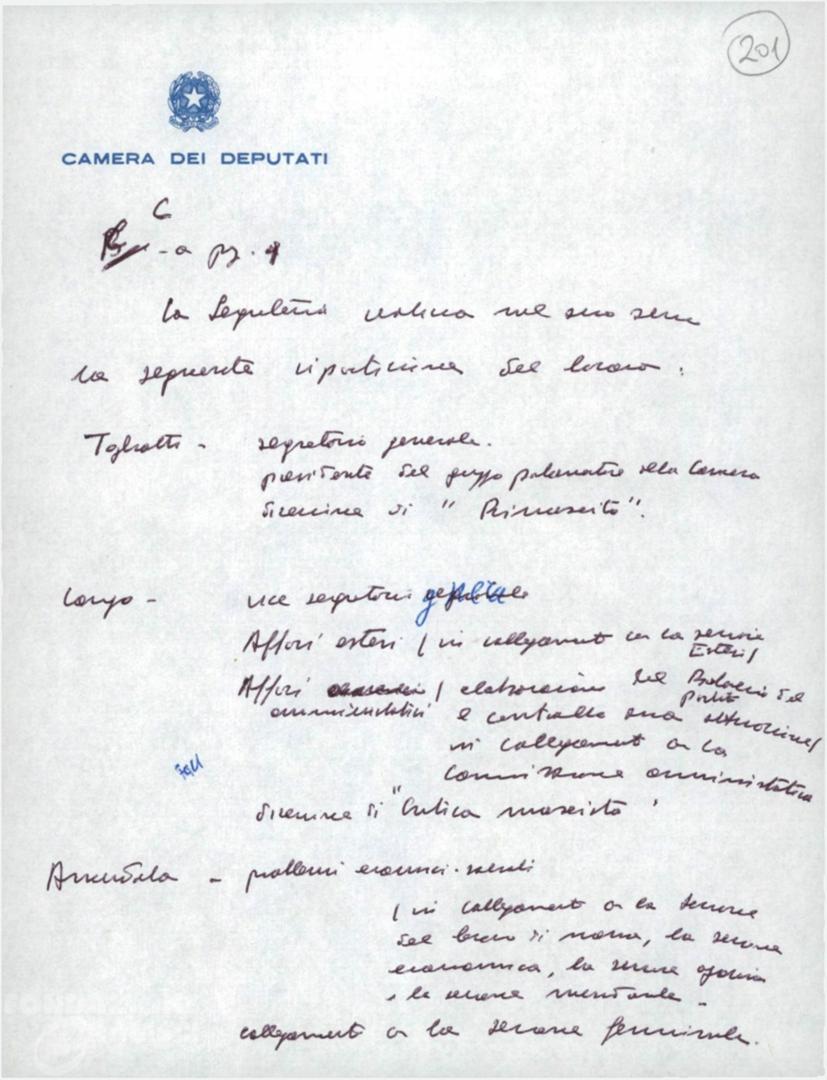 201
CAMERA DEI DEPUTATI
6
- a pag. 9
La Segreteria realizza nel suo seno
la seguente ripartizione del lavoro:
Togliatti - segretario generale.
presidente del gruppo parlamentare alla Camera
direzione di "Rinascita".
Longo - vice segretario
Affari esteri / in collegamento con la sezione
Esteri/
Affari / elaborazione del Bilancio del
partito
amministrativi e controllo sua attuazione/
in collegamento con la
Commissione amministrativa
direzione di "Critica marxista"
Amendola - problemi economici-sociali
/ in collegamento con la sezione
del lavoro di massa, la sezione
economica, la sezione agraria
e la sezione
collegamento con la sezione femminile.